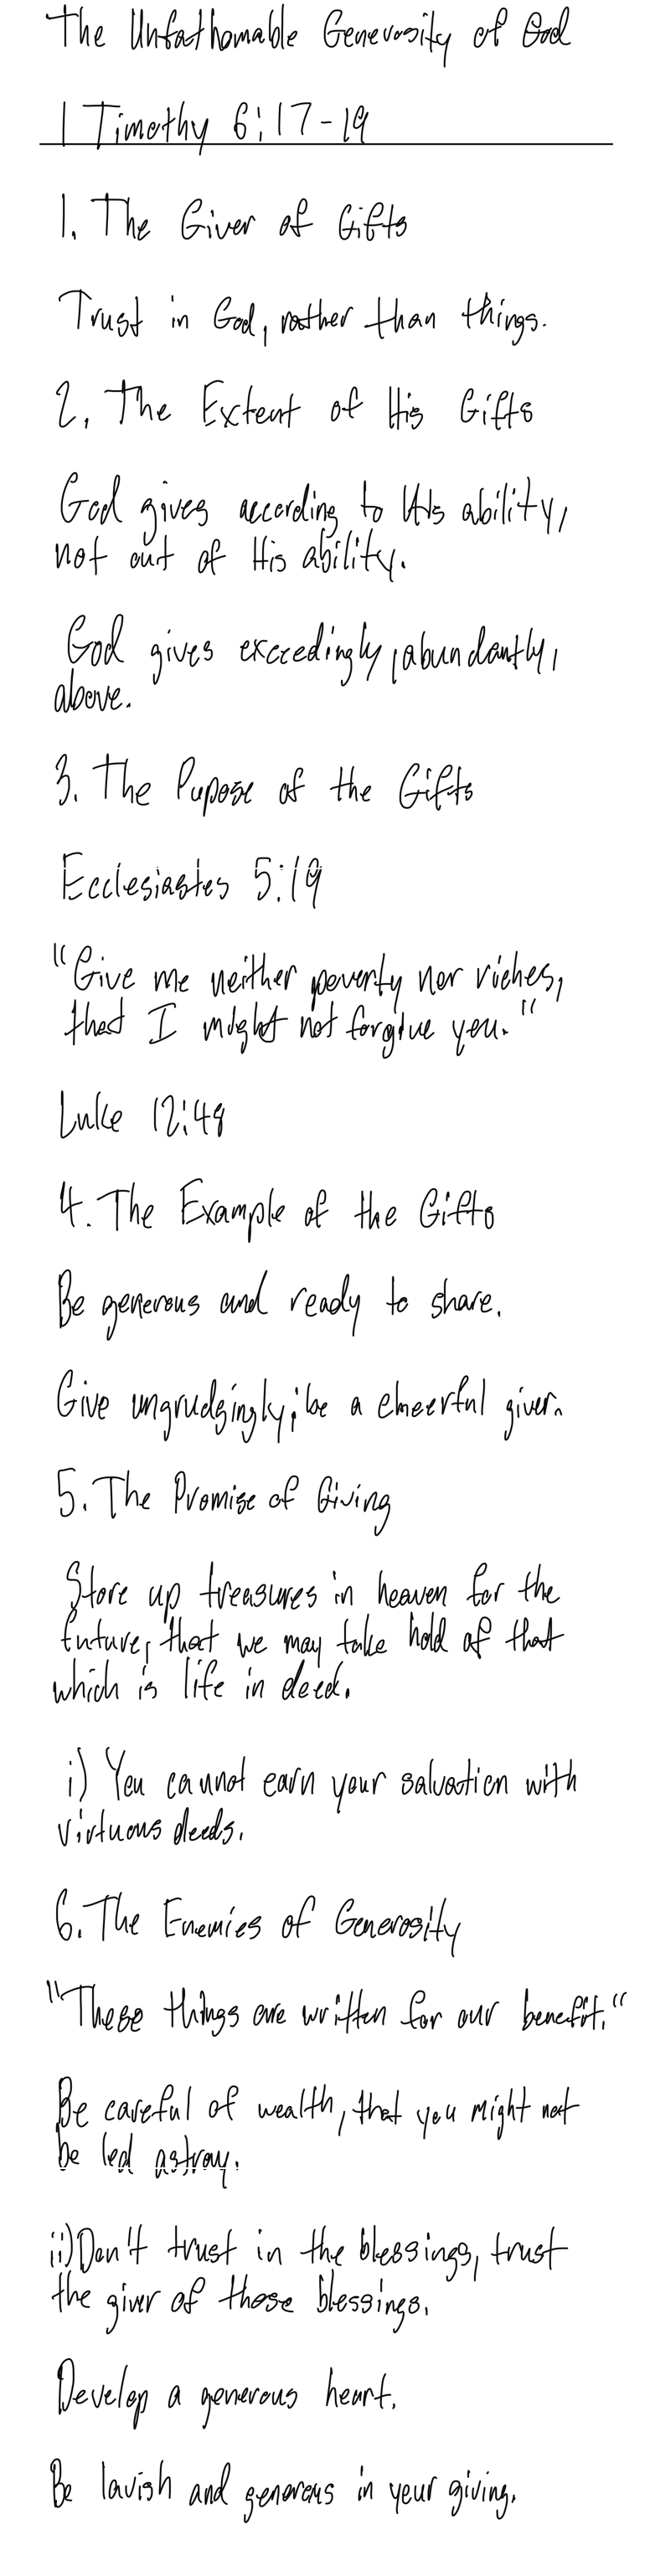 The Unfathomable Generosity of God
1 Timothy 6:17-19
1. The Giver of Gifts
Trust in God, rather than things.
2. The Extent of His Gifts
God gives according to His ability,
not out of His ability.
God gives exceedingly, abundantly,
above.
3. The Pupose of the Gifts
Ecclesiastes 5:19
"Give me neither poverty nor riches,
that I might not forgive you."
Luke 12:48
4. The Example of the Gifts
Be generous and ready to share.
Give ungrudgingly; be a cheerful giver.
5. The Promise of Giving
Store up treasures in heaven for the
future, that we may take hold of that
which is life in deed.
i) You cannot earn your salvation with
virtuous deeds.
6. The Enemies of Generosity
"These things are written for our benefit."
Be careful of wealth, that you might not
be led astray.
ii) Don't trust in the blessings, trust
the giver of those blessings.
Develop a generous heart.
Be lavish and generous in your giving.